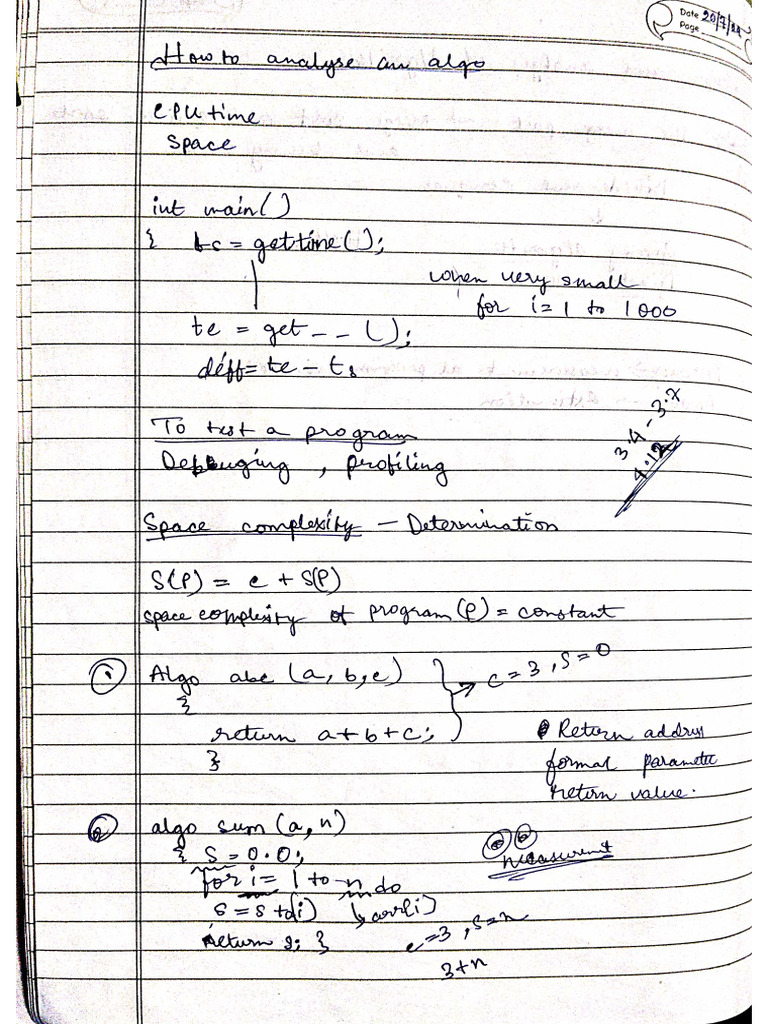 Date 20/7/24
Page
How to analyse an algo
CPU time
Space
int main()
{ ts = gettime();
when very small
for i = 1 to 1000
te = get _ _ ();
diff = te - ts
To test a program
Debuging , profiling
3.4 - 3.x
4.12
Space complexity - Determination
S(P) = c + S(P)
space complexity of program (P) = constant
① Algo abc (a, b, c)
c = 3, s = 0
{
return a + b + c;
}
Return address
formal parameter
return value.
② algo sum (a, n)
{ S = 0.0;
for i = 1 to n do
s = s + a[i] arr[i]
return s; }
measurement
c = 3, s = n
3 + n